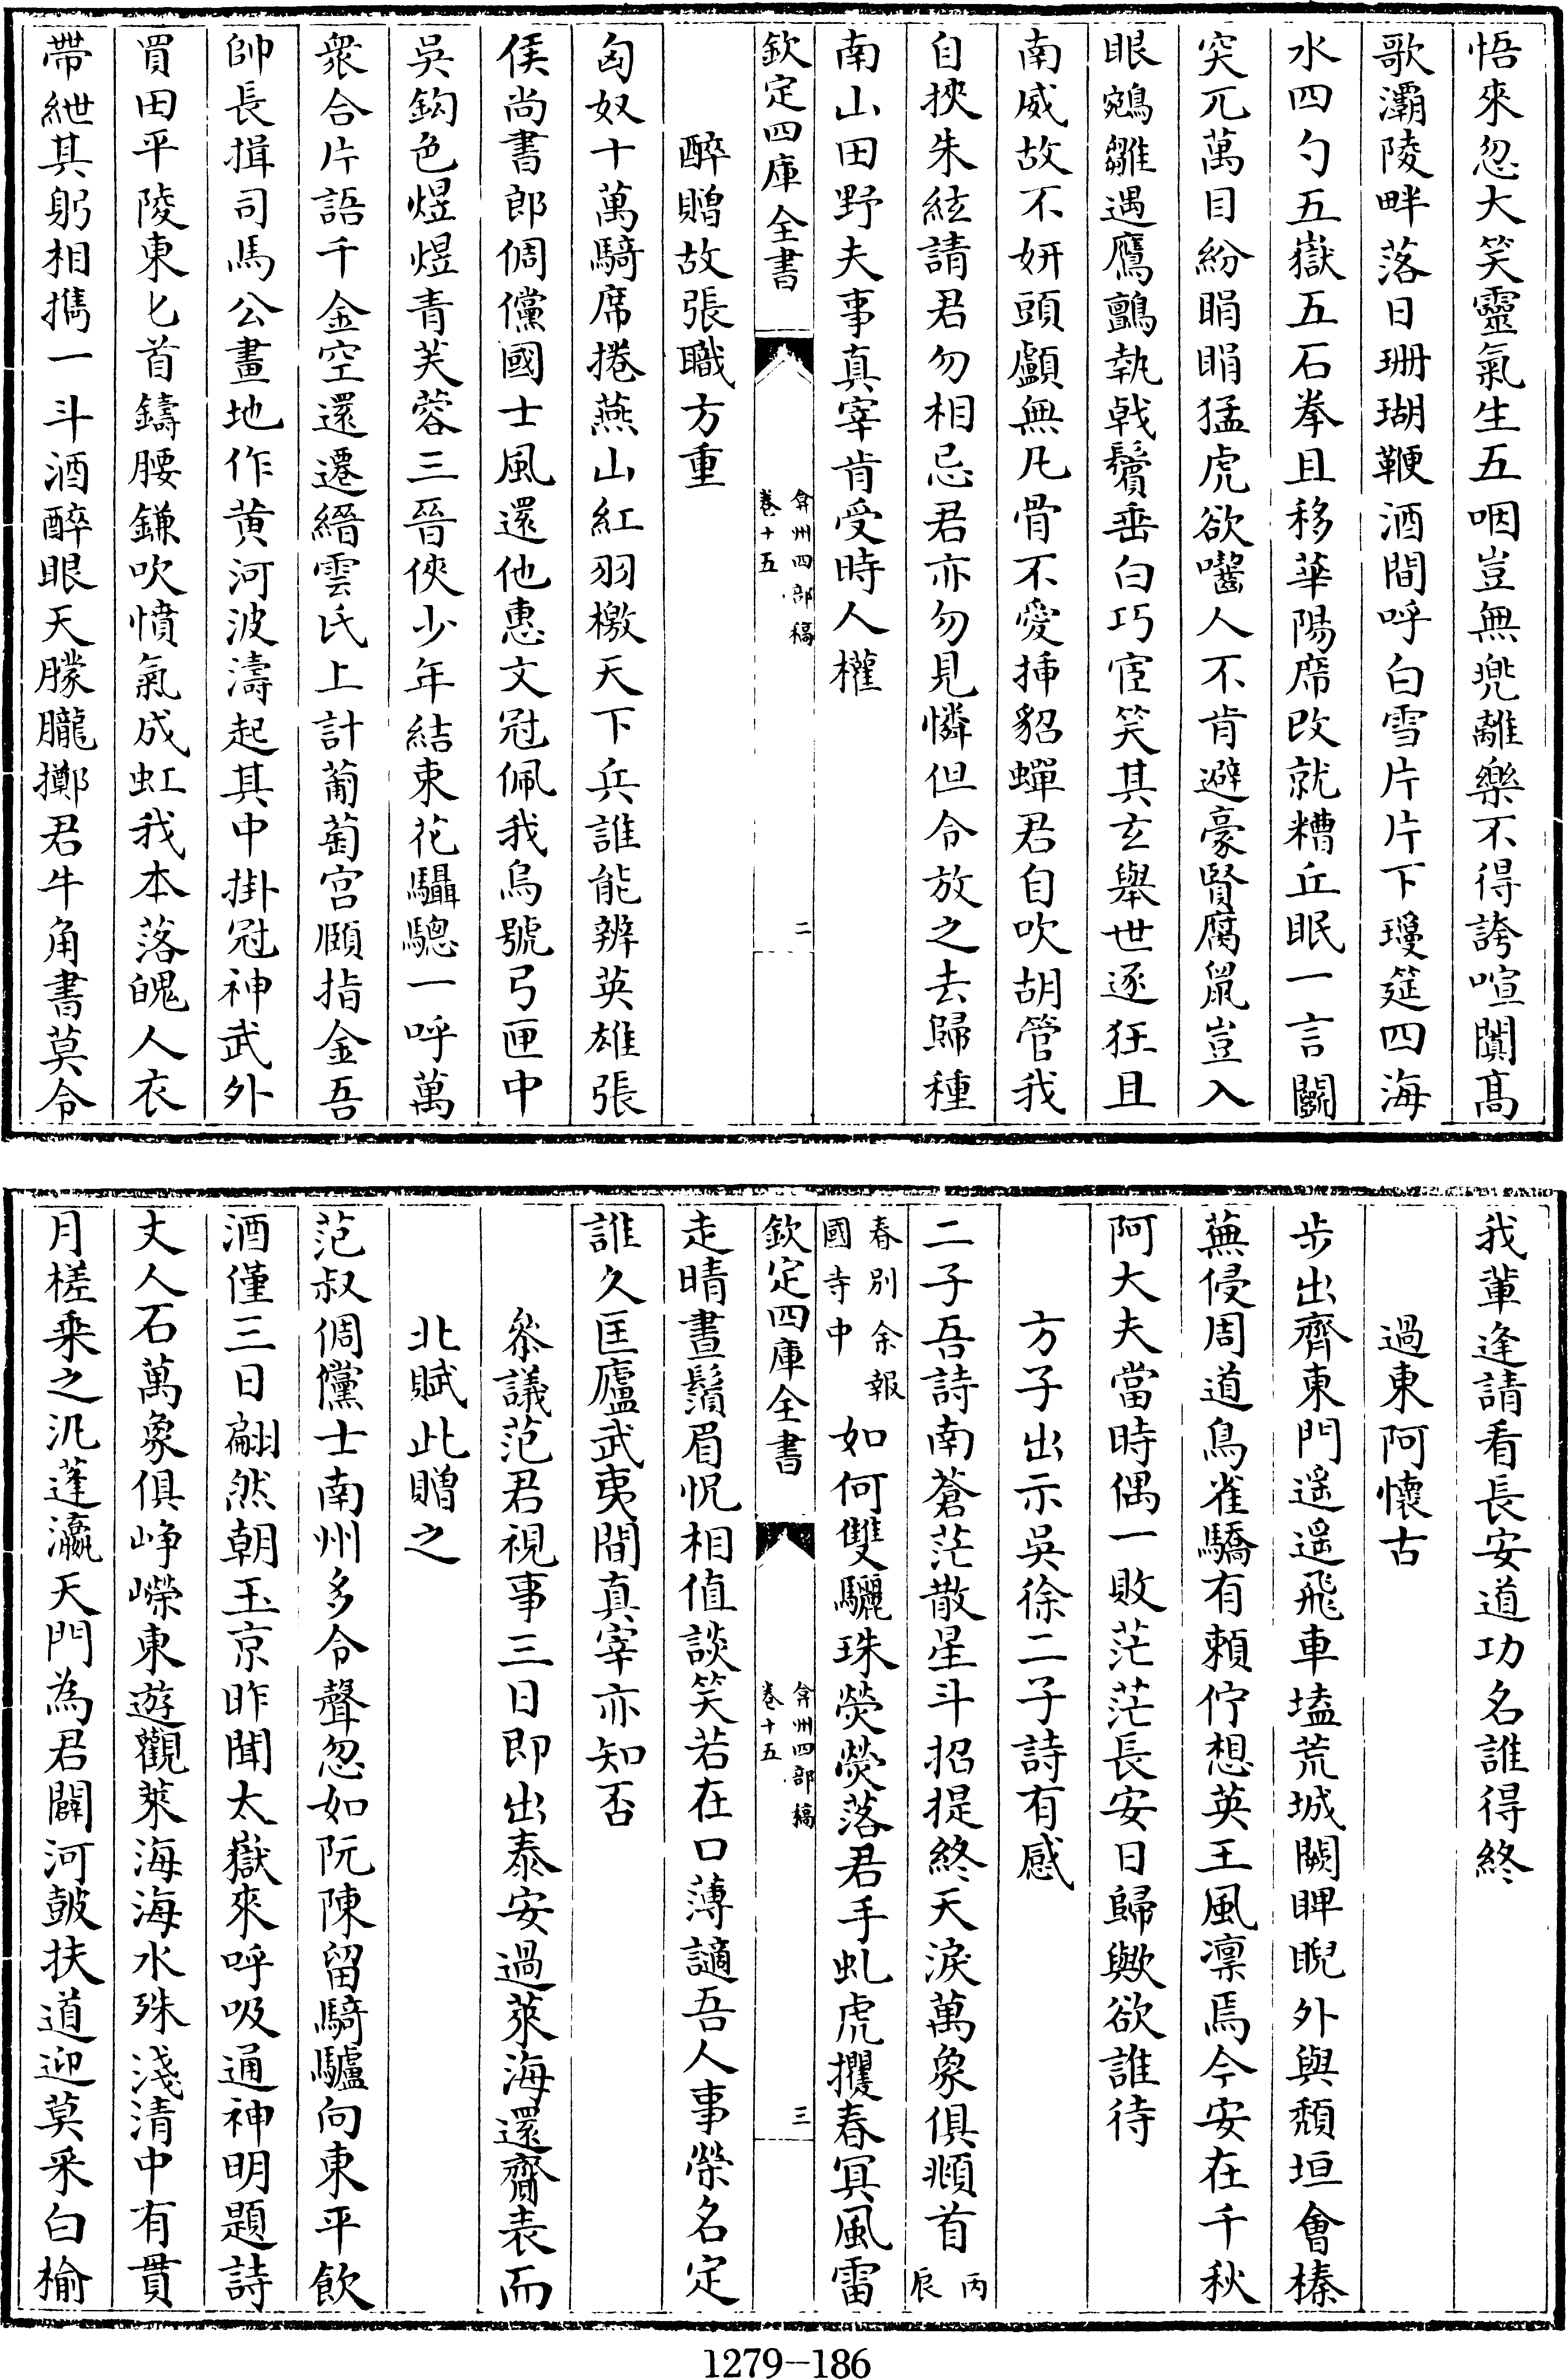 悟來忽大笑靈氣生五咽豈無兠離樂不得誇喧闐髙
歌灞陵畔落日珊瑚鞭酒間呼白雪片片下瓊筵四海
水四勺五嶽五石拳且移華陽席改就糟丘眠一言關
突兀萬目紛睊睊猛虎欲囓人不肯避豪賢腐鼠豈入
眼鵷雛遇鷹鸇執戟鬢垂白巧宦笑其玄舉世逐狂且
南威故不妍頭顱無凡骨不愛揷貂蟬君自吹胡管我
自挾朱絃請君勿相忌君亦勿見憐但令放之去歸種
南山田野夫事真宰肯受時人權
欽定四庫全書
弇州四部稿
卷十五
二
醉贈故張職方重
匈奴十萬騎席捲燕山紅羽檄天下兵誰能辨英雄張
侯尚書郎倜儻國士風還他惠文冠佩我烏號弓匣中
吳鈎色煜煜青芙蓉三晉俠少年結束花驄驄一呼萬
衆合片語千金空還遷縉雲氏上計葡萄宫頤指金吾
帥長揖司馬公畫地作黄河波濤起其中掛冠神武外
買田平陵東匕首鑄腰鎌吹憤氣成虹我本落魄人衣
帶紲其躬相攜一斗酒醉眼天朦朧擲君牛角書莫令
我輩逢請看長安道功名誰得終
過東阿懷古
步出齊東門遥遥飛車壒荒城闕睥睨外與頽垣會榛
蕪侵周道鳥雀驕有賴佇想英王風凛焉今安在千秋
阿大夫當時偶一敗茫茫長安日歸歟欲誰待
方子出示吳徐二子詩有感
二子吾詩南蒼茫散星斗招提終天淚萬象俱順首丙
辰
春别余報
國寺中
如何雙驪珠熒熒落君手虬虎攫春冥風雷
欽定四庫全書
弇州四部稿
卷十五
三
走晴晝鬚眉怳相值談笑若在口薄謫吾人事榮名定
誰久匡廬武夷間真宰亦知否
叅議范君視事三日即出泰安過萊海還齎表而
北賦此贈之
范叔倜儻士南州多令聲忽如阮陳留騎驢向東平飲
酒僅三日翩然朝玉京昨聞太嶽來呼吸通神明題詩
丈人石萬象俱峥嶸東遊觀萊海海水殊淺清中有貫
月槎乘之汎蓬瀛天門為君闢河鼓扶道迎莫采白榆
1279-186